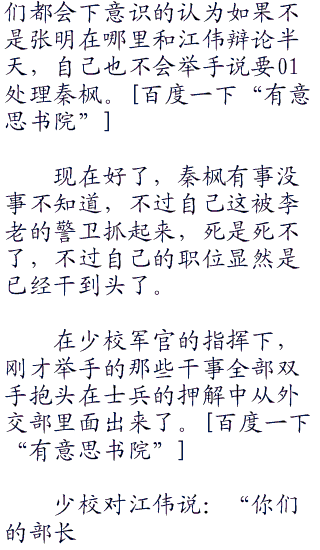 们都会下意识的认为如果不
是张明在哪里和江伟辩论半
天，自己也不会举手说要01
处理秦枫。[百度一下“有意
思书院”]
现在好了，秦枫有事没
事不知道，不过自己这被李
老的警卫抓起来，死是死不
了，不过自己的职位显然是
已经干到头了。
在少校军官的指挥下，
刚才举手的那些干事全部双
手抱头在士兵的押解中从外
交部里面出来了。[百度一下
“有意思书院”]
少校对江伟说：“你们
的部长